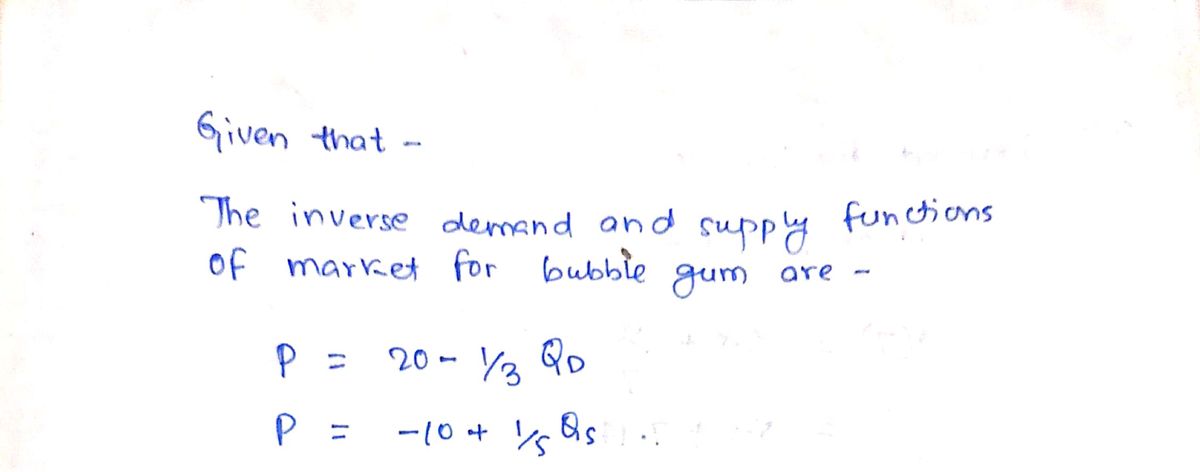 Given that -
The inverse demand and supply functions
of market for bubble gum are -
P = 20 - 1/3 QD
P = -10 + 1/5 QS